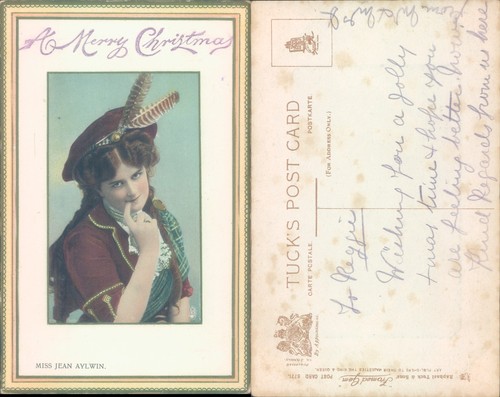 A Merry Christmas
MISS JEAN AYLWIN.
TUCK'S POST CARD
CARTE POSTALE.
POSTKARTE
(FOR ADDRESS ONLY.)
To Reggie
Wishing you a Jolly
Xmas time & hope you
are feeling better now
Kind Regards from us here
from
By Appointment.
Raphael Tuck & Sons'
POST CARD 6771.
ART PUBLISHERS TO THEIR MAJESTIES THE KING & QUEEN.